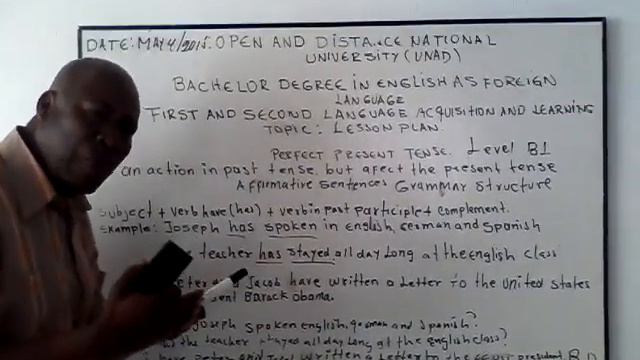 DATE: MAY 4/2015. OPEN AND DISTANCE NATIONAL
UNIVERSITY (UNAD)
BACHELOR DEGREE IN ENGLISH AS FOREIGN
LANGUAGE
FIRST AND SECOND LANGUAGE ACQUISITION AND LEARNING
TOPIC: LESSON PLAN.
PERFECT PRESENT TENSE. Level B1
an action in past tense. but afect the present tense
Affirmative sentences Grammar Structure
Subject + verb have (has) + verb in past participle + complement.
Example: Joseph has spoken in english, german and spanish
teacher has stayed all day long at the english class
Jacob have written a Letter to the united states
Barack obama.
Joseph spoken english, german and spanish?
the teacher stayed all day long at the english class?
have Peter and written a Letter to president B.O